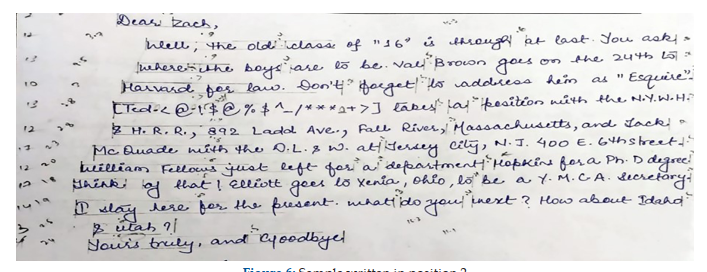 Dear Zach,
Well, the old class of "16" is through at last. You ask
where the boys are to be. Val Brown goes on the 24th to
Harvard for law. Don't forget to address him as "Esquire".
takes a position with the N.Y.N.H.
& H.R.R., 892 Ladd Ave., Fall River, Massachusetts, and Jack
Mc Quade with the D.L. & W. at Jersey City, N.J. 400 E. 6th street.
William Fellows just left for a department Hopkins for a Ph. D degree
think of that! Elliott goes to Xenia, Ohio, to be a Y.M.C.A. Secretary
I stay here for the present. What do you next? How about Idaho
& utah?
Yours truly, and Goodbye